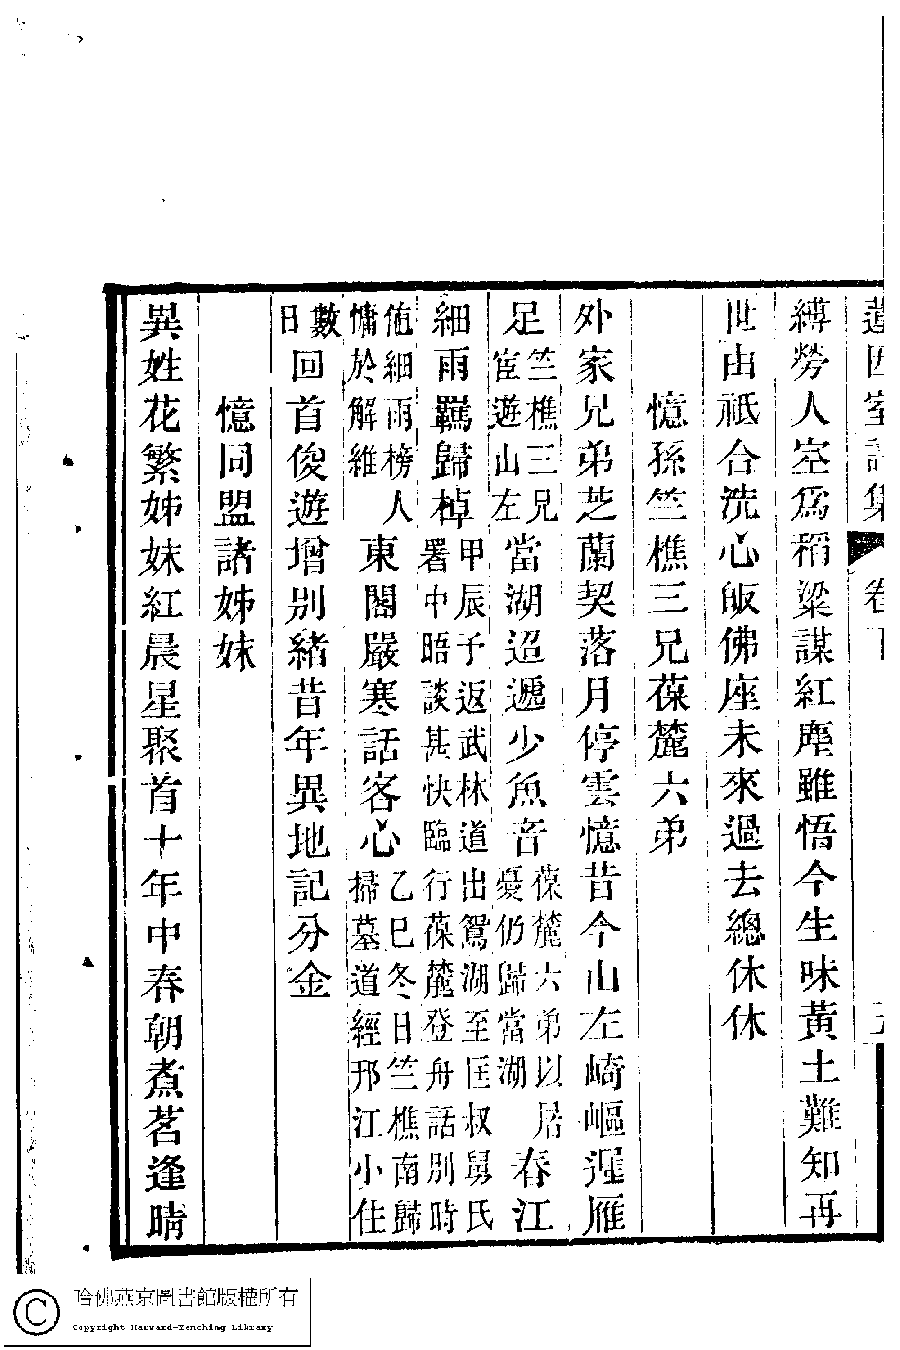 蓮因室詩集 卷下
縛勞人空爲稻粱謀紅塵雖悟今生味黃土難知再
世由祇合洗心皈佛座未來過去總休休
憶孫竺樵三兄葆麓六弟
外家兄弟芝蘭契落月停雲憶昔今山左崎嶇遲雁
足竺樵三兄宦遊山左當湖迢遞少魚音葆麓六弟以居憂仍歸當湖春江
細雨羈歸棹甲辰予返武林道出鴛湖至匡叔舅氏署中晤談甚快臨行葆麓登舟話別時
値細雨榜人慵於解維東閣嚴寒話客心乙巳冬日竺樵南歸掃墓道經邗江小住
數日回首俊遊增別緒昔年異地記分金
憶同盟諸姊妹
異姓花繁姊妹紅晨星聚首十年中春朝煮茗逢晴
哈佛燕京圖書館版權所有
Copyright Harvard-Yenching Library